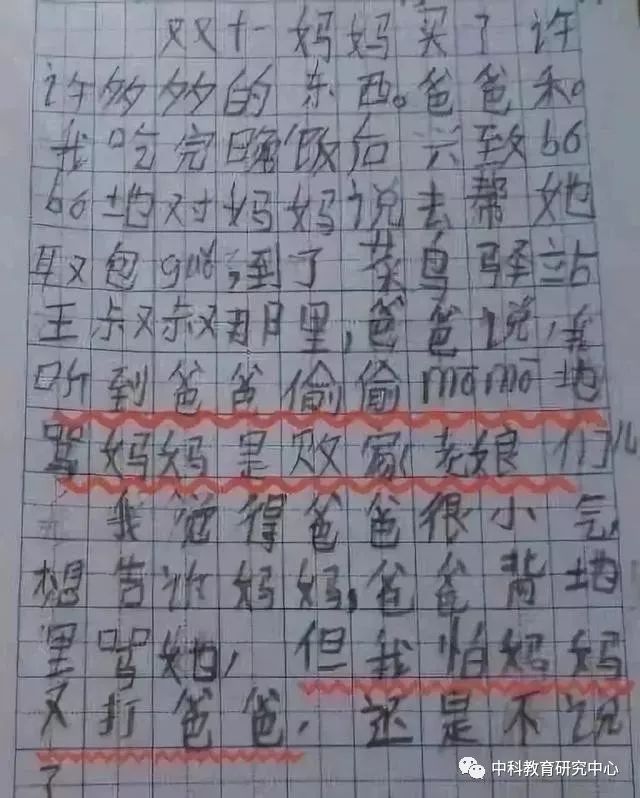 双十一妈妈买了许
许多多的东西。爸爸和
我吃完晚饭后兴致bó
bó地对妈妈说去帮她
取包guǒ,到了菜鸟驿站
王叔叔那里,爸爸说,我
听到爸爸偷偷mōmō地
骂妈妈是败家老娘们儿
我觉得爸爸很小气,
想告诉妈妈,爸爸背地
里骂她,但我怕妈妈
又打爸爸,还是不说
了
中科教育研究中心